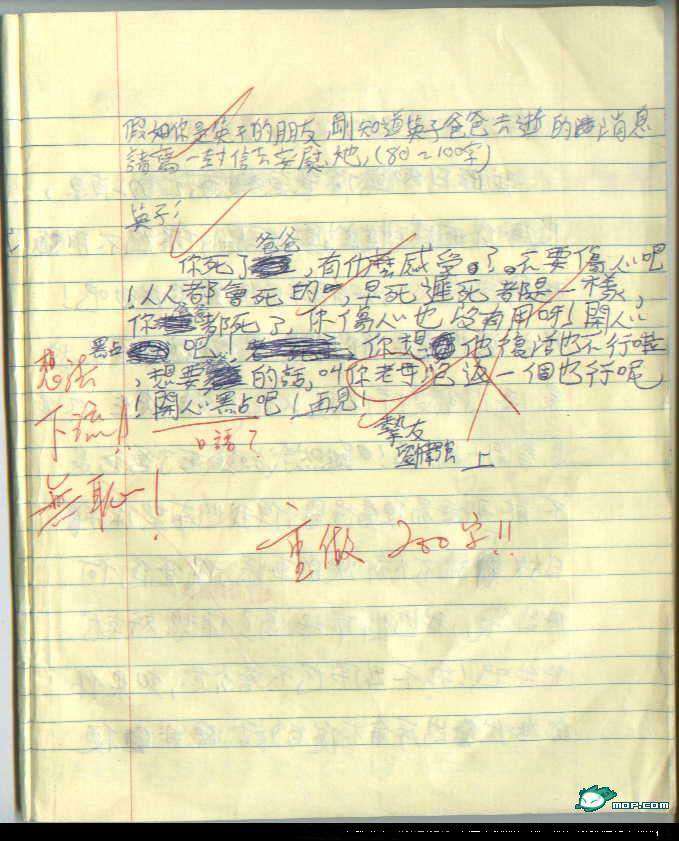 假如你是英子的朋友,剛知道英子爸爸去逝的消息
請寫一封信去安慰她,(80~100字)
英子:
爸爸
你死了,有什麼感受。了。不要傷心吧
!人人都會死的,早死遲死都是一樣,
你都死了,你傷心也沒有用呀!開心
點吧,你想他復活也不行啦
,想要的話,叫你老母滾返一個也行呢
!開心點吧!再見!
摯友
上
想法
下流!!
無恥!
口話?
重做 200字!!
mop.com